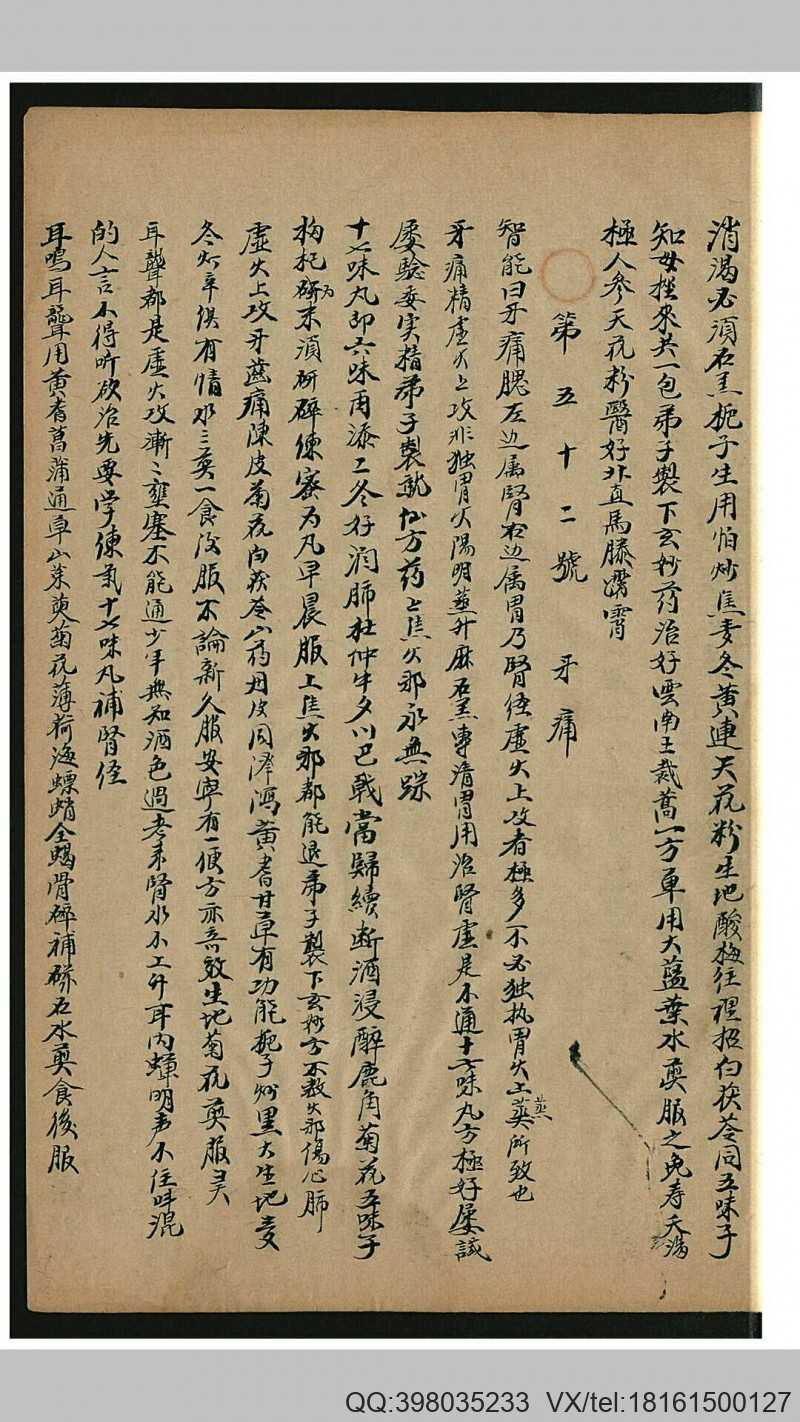 消渴必須石羔枙子生用怕炒焦麦冬黄連天花粉生地酸梅往裡招白茯苓同五味子
知母挫來共一包弟子製下玄妙药治好雲南王裁蒿一方单用大蓝葉水煎服之免寿夭
極人参天花粉醫好北直馬滕霄
第五十二號 牙痛
智能曰牙痛腮左边属腎右边属胃乃腎经虚火上攻者極多不必独执胃火上蒸所致也
牙痛精虚火上攻非独胃火陽明蒸升麻石羔專清胃用治腎虚是不通十七味丸方極好屡試
屡验委实精弟子製就仙方药上焦火邪永無踪
十七味丸即六味用添二冬好润肺杜仲牛夕川巴戟當歸續断酒浸醉鹿角菊花五味子
枸杞研为末須研碎煉蜜为凡早晨服上焦火邪都能退弟子製下玄妙方不教火邪傷心肺
虚火上攻牙齒痛陳皮菊花白茯苓山药丹皮同澤瀉黄耆甘草有功能枙子炒黑大生地麦
冬灯辛俱有情水三煎一食没服不論新久服安寧有一便方亦奇效生地菊花煎服灵
耳聾都是虚火攻漸〻壅塞不能通少年無知酒色過老来腎水不上升耳内蟬明声不住吽混
的人言不得听欲治先要学煉氣十七味丸補腎经
耳鳴耳聾用黄耆菖蒲通草山茱萸菊花薄荷海螵蛸全蝎骨碎補磁石水煎食後服
QQ:398035233 VX/tel:18161500127